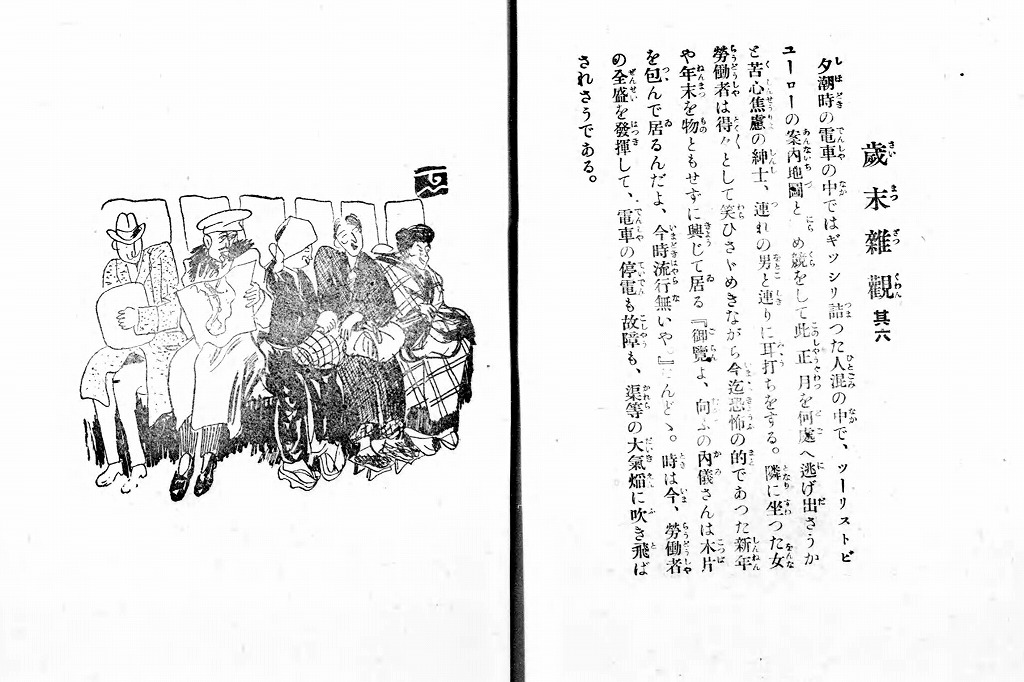 歲末雜觀 其六
夕潮時の電車の中ではギツシリ詰つた人混の中で、ツーリストビ
ユーローの案內地圖と め競をして此正月を何處へ逃げ出さうか
と苦心焦慮の紳士、連れの男と連りに耳打ちをする。隣に坐つた女
勞働者は得々として笑ひさゞめきながら今迄恐怖の的であつた新年
や年末を物ともせずに興じて居る『御覽よ、向ふの內儀さんは木片
を包んで居るんだよ、今時流行無いや』 んどゝ。時は今、勞働者
の全盛を發揮して、電車の停電も故障も、渠等の大氣焰に吹き飛ば
されさうである。